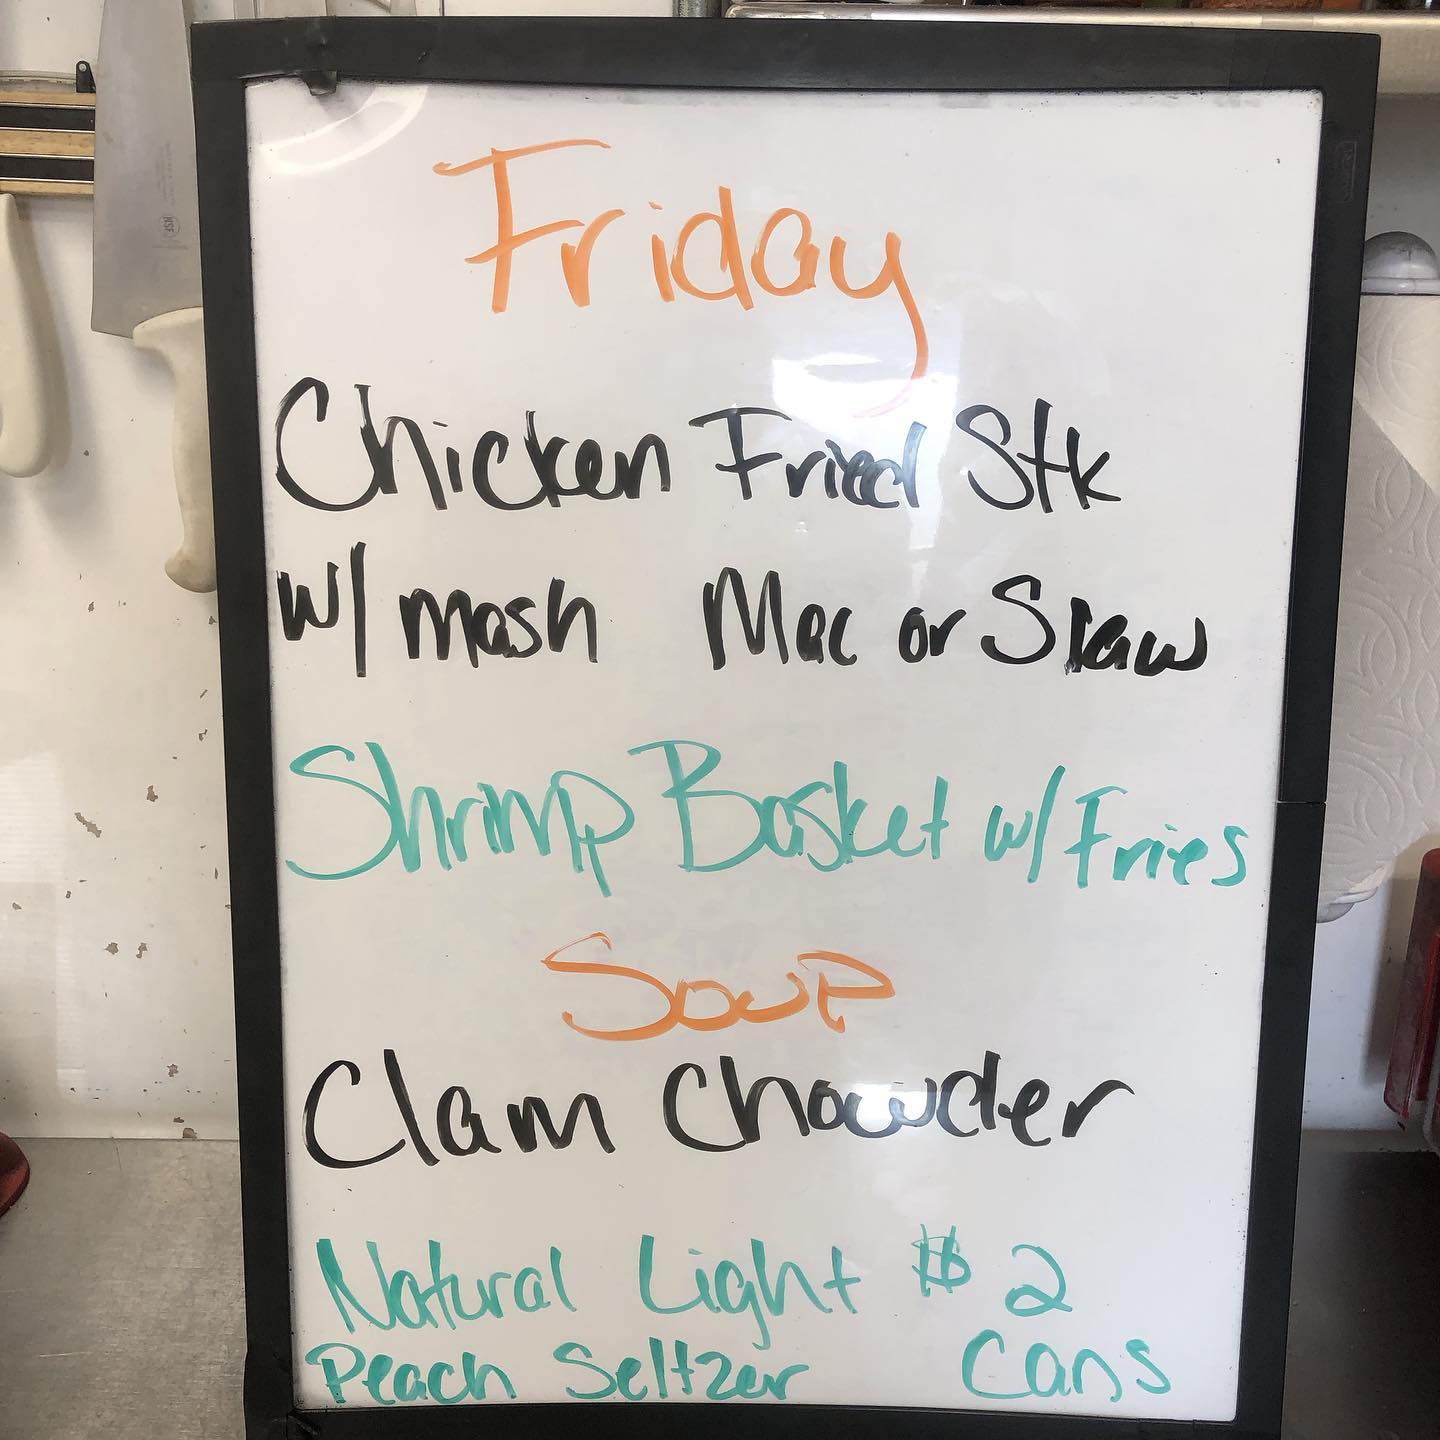 Friday
Chicken Fried Stk
w/ mash Mac or Slaw
Shrimp Basket w/ Fries
Soup
Clam Chowder
Natural Light $ 2
Peach Seltzer Cans
NSF